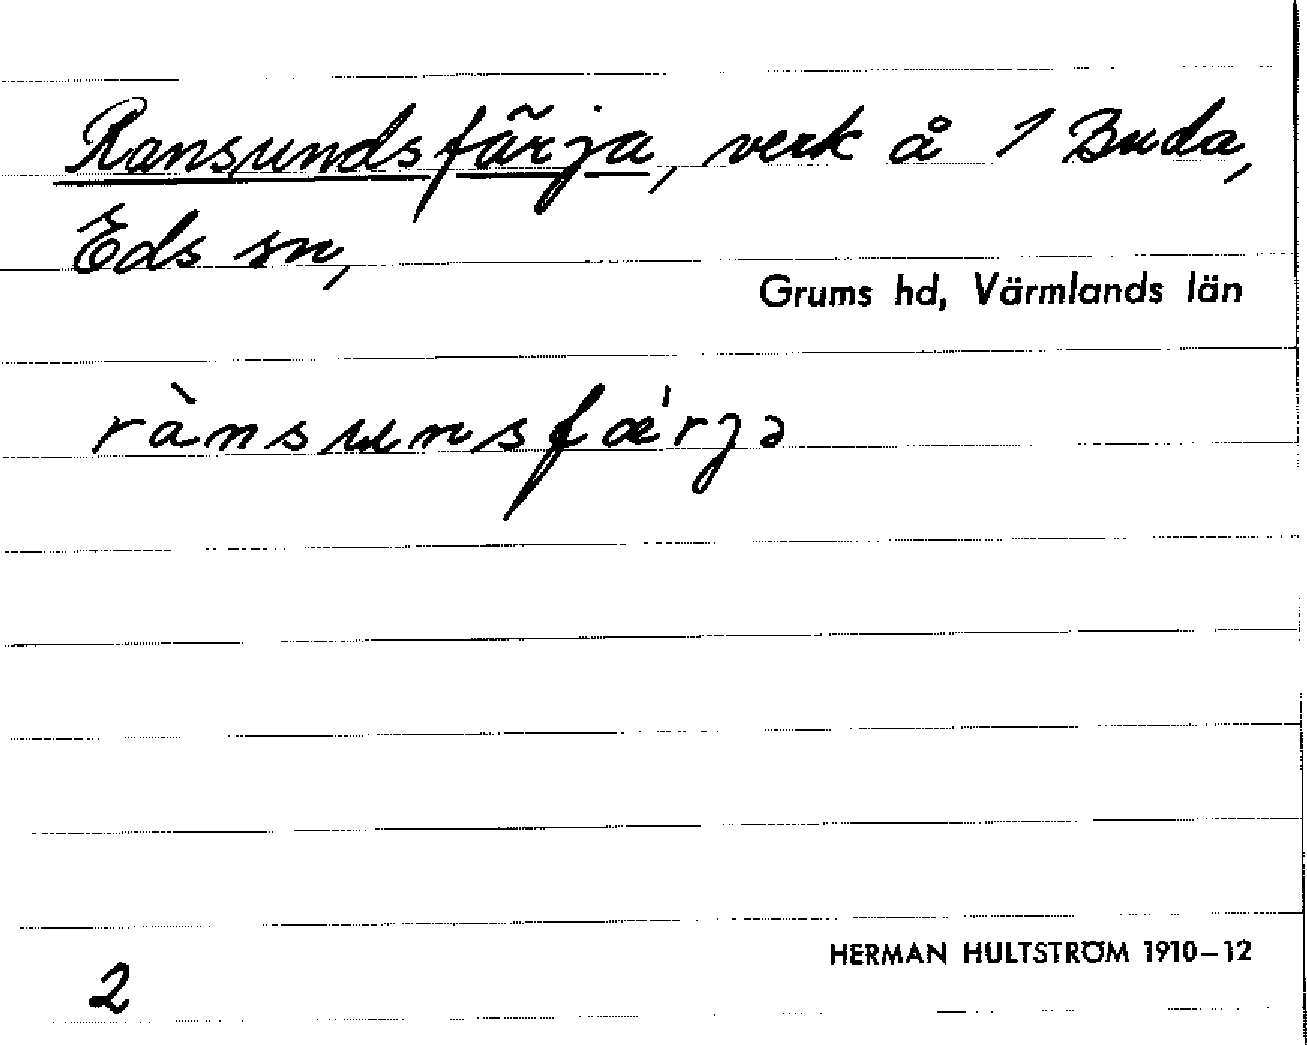 Ransundsfärja, verk å 1 Buda,
Eds sn,
Grums hd, Värmlands län
rànsunsfæ'rjə
HERMAN HULTSTRÖM 1910–12
2